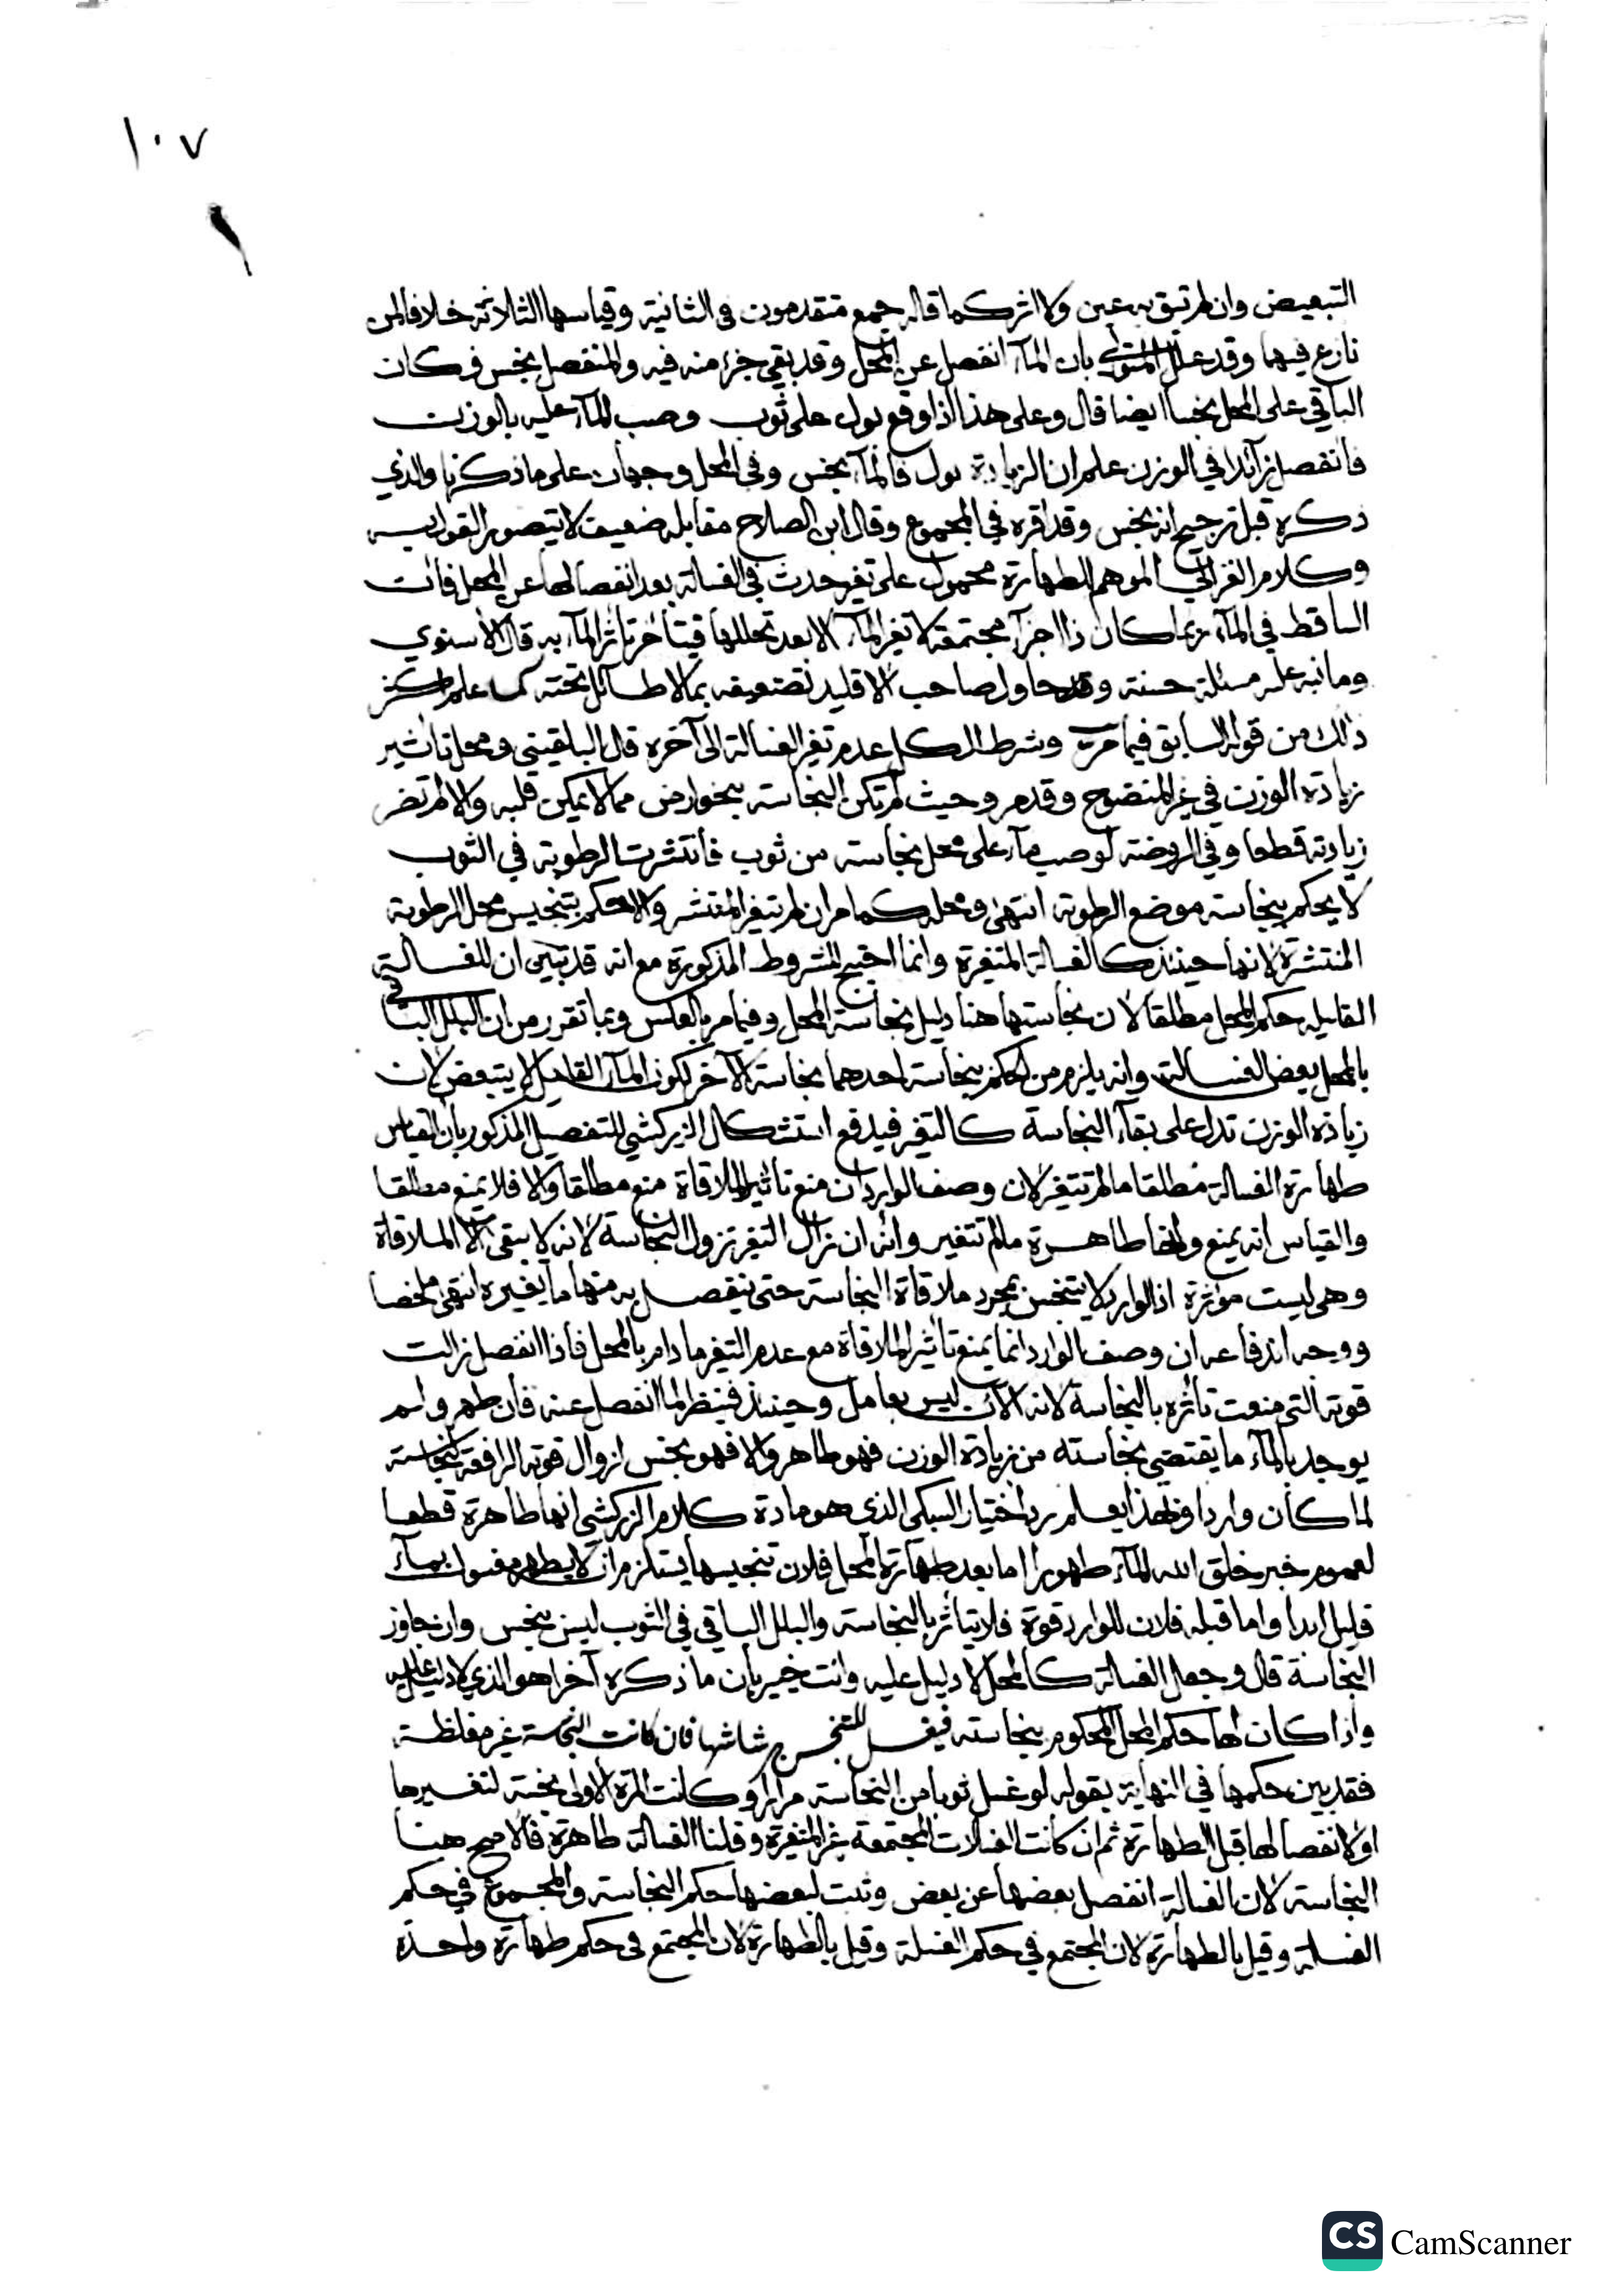 ١٠٧
التبعيض وان لم تبق به عين ولا اثر كما قاله جمع متقدمون فى الثانية وقياسها الثالاثة خلافا لمن
نازع فيها وقد علل المتولى بان المآء انفصل عن المحل وقد بقي جزء منه فيه والمنفصل نجس فكان
الباقي على المحل نجسا ايضا قال وعلى هذا اذا وقع بول على ثوب وصب المآء عليه بالوزن
فانفصل زآئدا في الوزن علم ان الزيادة بول فالمآء نجس وفي المحل وجهان على ما ذكرنا والذي
ذكره قبل ترجيح انه نجس وقد اقره في المجموع وقال ابن الصلاح مقابله ضعيف لا يتصور القول به
وكلام الغزالي الموهم للطهارة محمول على تغير حدث في الغسالة بعد انفصالها عن المحل فان
الساقط في المآء ربما كان ذا اجزآء مجتمعة لا تغير المآء الا بعد تحللها فيتأخر تأثر المآء به قال الأسنوي
وما نبه عليه مسئلة حسنة وقد حاول صاحب الاقليد تضعيفه بما لا طائل تحته كما علم اكثر
ذلك من قوله السابق فيما مر وشرط الكل عدم تغير الغسالة الى آخره قال البلقيني ومحل تأثير
زيادة الوزن في غير المنضوح وقدم وحيث لم تكن النجاسة بنحو ارض مما لا يمكن قلبه والا لم تضر
زيادته قطعا وفي الروضة لو صب مآء على محل نجاسة من ثوب فانتشرت الرطوبة في الثوب
لا يحكم بنجاسة موضع الرطوبة انتهى ومحله كما مر ان لم تتغير المنتشر والا حكم بتنجيس محل الرطوبة
المنتشرة لانها حينئذ كالغسالة المتغيرة وانما احتيج للشروط المذكورة مع انه قد تبين ان للغسالة
القليله حكم المحل مطلقا لان نجاستها هنا دليل نجاسة المحل وفيما مر بالعكس وبما تقرر من ان البلل الباقي
بالمحل بعض الغسالة وانه يلزم من الحكم بنجاسة احدهما نجاسة الآخر لكون المآء القليل لا يتبعض لان
زيادة الوزن تدل على بقآء النجاسة كالتغير فيدفع استشكال الزركشي للتفصيل المذكور بان القياس
طهارة الغسالة مطلقا ما لم تتغير لان وصف الوارد ان منع تاثير الملاقاة منع مطلقا والا فلا يمنع مطلقا
والقياس انه يمنع وانها طاهرة مالم تتغير وانه ان زال التغير تزول النجاسة لانه لا يبقى الا الملاقاة
وهى ليست مؤثرة اذ الوارد لا يتنجس بمجرد ملاقاة النجاسة حتى ينفصل به منها ما يغيره انتهى ملخصا
ووجه اندفاعه ان وصف الوارد انما يمنع تأثير الملاقاة مع عدم التغير ما دام بالمحل فاذا انفصل زالت
قوته التى منعت تأثره بالنجاسة لانه الآن ليس بعامل وحينئذ فينظر لما انفصل عنه فان طهر ولم
يوجد بالمآء ما يقتضي نجاسته من زيادة الوزن فهو طاهر والا فهو نجس لزوال قوته الرافعة لنجاسته
لما كان واردا وبهذا يعلم رد اختيار السبكى الذي هو مادة كلام الزركشي انها طاهرة قطعا
لعموم خبر خلق الله المآء طهورا اما بعد طهارة المحل فلان تنجيسها يستلزم ان لا يطهر مغسول بمآء
قليل ابدا واما قبله فلان للوارد قوة فلا يتأثر بالنجاسة والبلل الباقي في الثوب ليس بنجس وان جاوز
النجاسة قال وجعل الغسالة كالمحل لا دليل عليه وانت خبير بأن ما ذكره آخرا هو الذي لا دليل عليه
واذا كان لها حكم المحل المحكوم بنجاسته فيغسل المتنجس برشاشها فان كانت النجاسة غير مغلظة
فقد بين حكمها في النهاية بقوله لو غسل ثوبا من النجاسة مرارا وكانت المرة الأولى نجسة لتغيرها
او لانفصالها قبل الطهارة ثم ان كانت الغسلات المجتمعة غير المتغيرة وقلنا الغسالة طاهرة فالأصح هنا
النجاسة لان الغسالة انفصل بعضها عن بعض وثبت لبعضها حكم النجاسة والمجموع في حكم
الغسلة وقيل بالطهارة لان المجتمع في حكم الغسلة وقيل بالطهارة لان المجتمع فى حكم طهارة واحدة
CS CamScanner